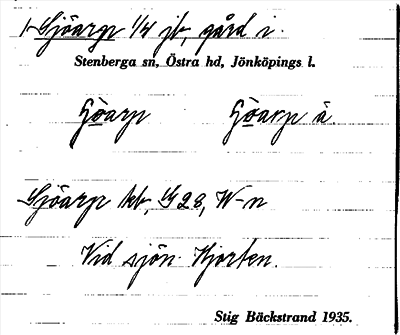 1. Sjöarp 1/4 jb, gård i.
Stenberga sn, Östra hd, Jönköpings l.
Söarp Söarp å
Sjöarp kb, 28, W-n
Vid sjön Hjorten.
Stig Bäckstrand 1935.